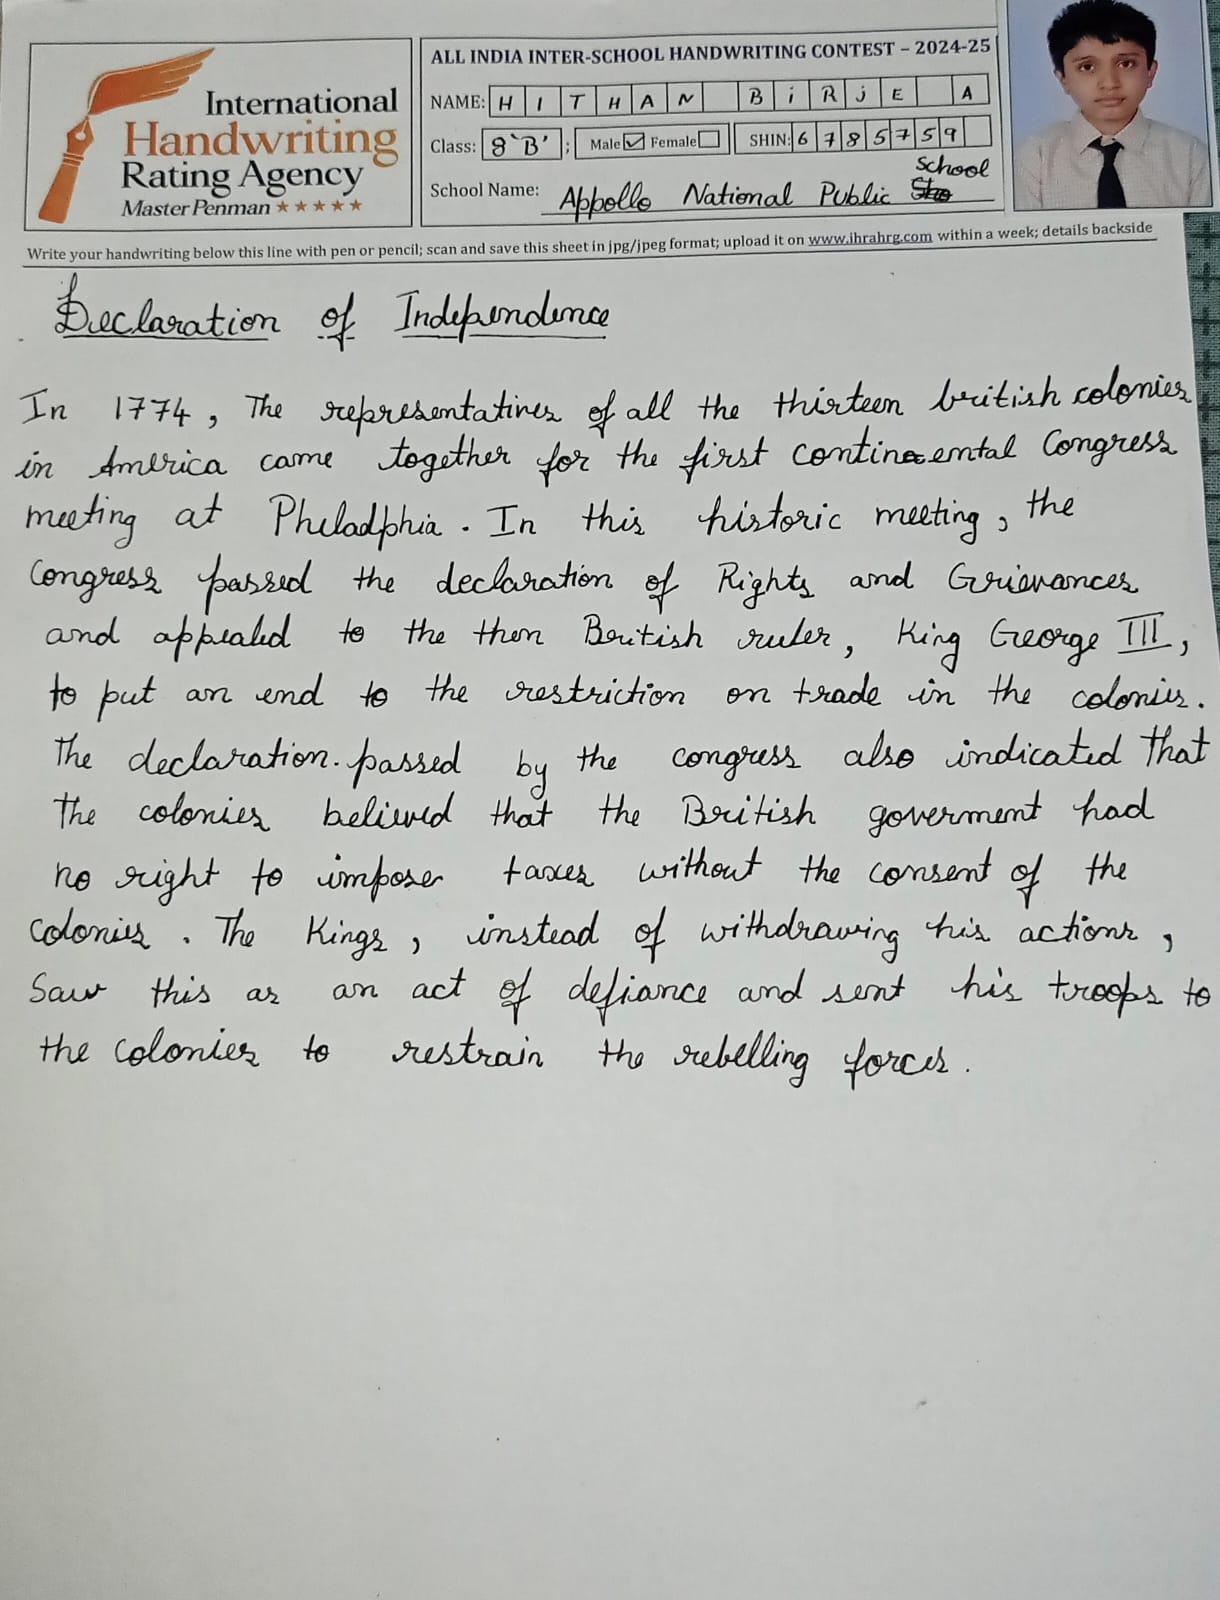 International
Handwriting
Rating Agency
Master Penman ★★★★★
ALL INDIA INTER-SCHOOL HANDWRITING CONTEST – 2024-25
NAME: HITHAN BiRjE A
Class: 8 'B' ; Male ☑ Female ☐ SHIN: 6785759
School Name: Appollo National Public School
Write your handwriting below this line with pen or pencil; scan and save this sheet in jpg/jpeg format; upload it on www.ihrahrg.com within a week; details backside
Declaration of Independence
In 1774, The representatives of all the thirteen british colonies
in America came together for the first continental Congress
meeting at Philadphia. In this historic meeting, the
Congress passed the declaration of Rights and Grievances
and appealed to the then British ruler, King George III,
to put an end to the restriction on trade in the colonies.
The declaration. passed by the congress also indicated That
The colonies believed that the British goverment had
no right to impose taxes without the consent of the
colonies. The Kings, instead of withdrawing his actions,
Saw this as an act of defiance and sent his troops to
the colonies to restrain the rebelling forces.